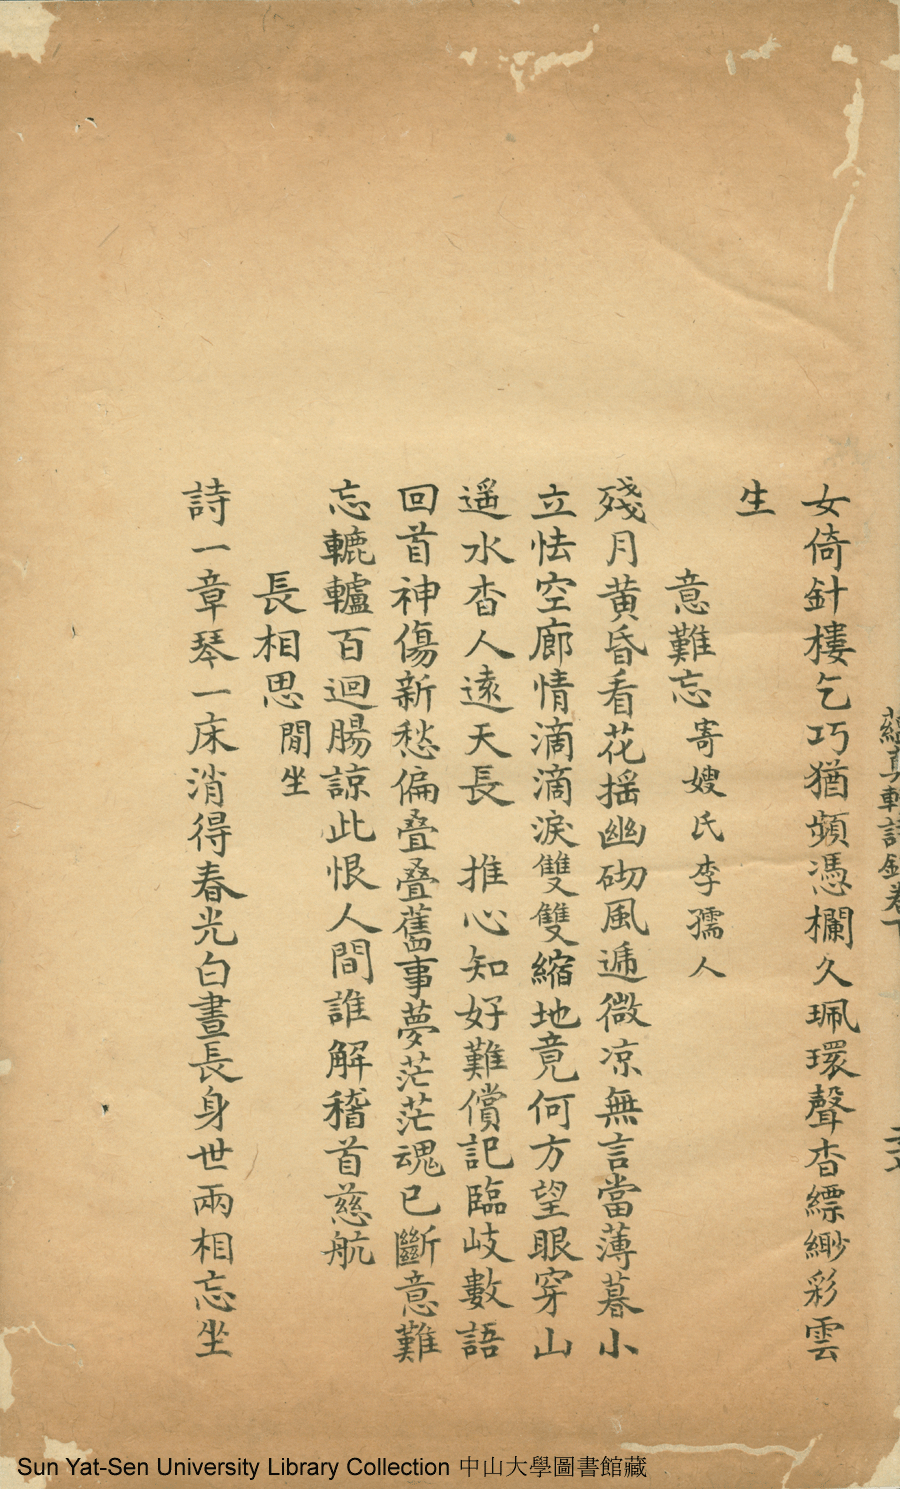 女倚針樓乞巧猶頻憑欄久珮環聲杳縹緲彩雲
生
意難忘 寄嫂氏李孺人
殘月黄昏看花摇幽砌風遞微凉無言當薄暮小
立怯空廊情滴滴淚雙雙縮地竟何方望眼穿山
遥水杳人遠天長　推心知好難償記臨岐數語
回首神傷新愁偏叠叠舊事夢茫茫魂已斷意難
忘轆轤百迴腸諒此恨人間誰解稽首慈航
長相思 閒坐
詩一章琴一床消得春光白晝長身世兩相忘坐
真軒詩鈔卷下
Sun Yat-Sen University Library Collection 中山大學圖書館藏